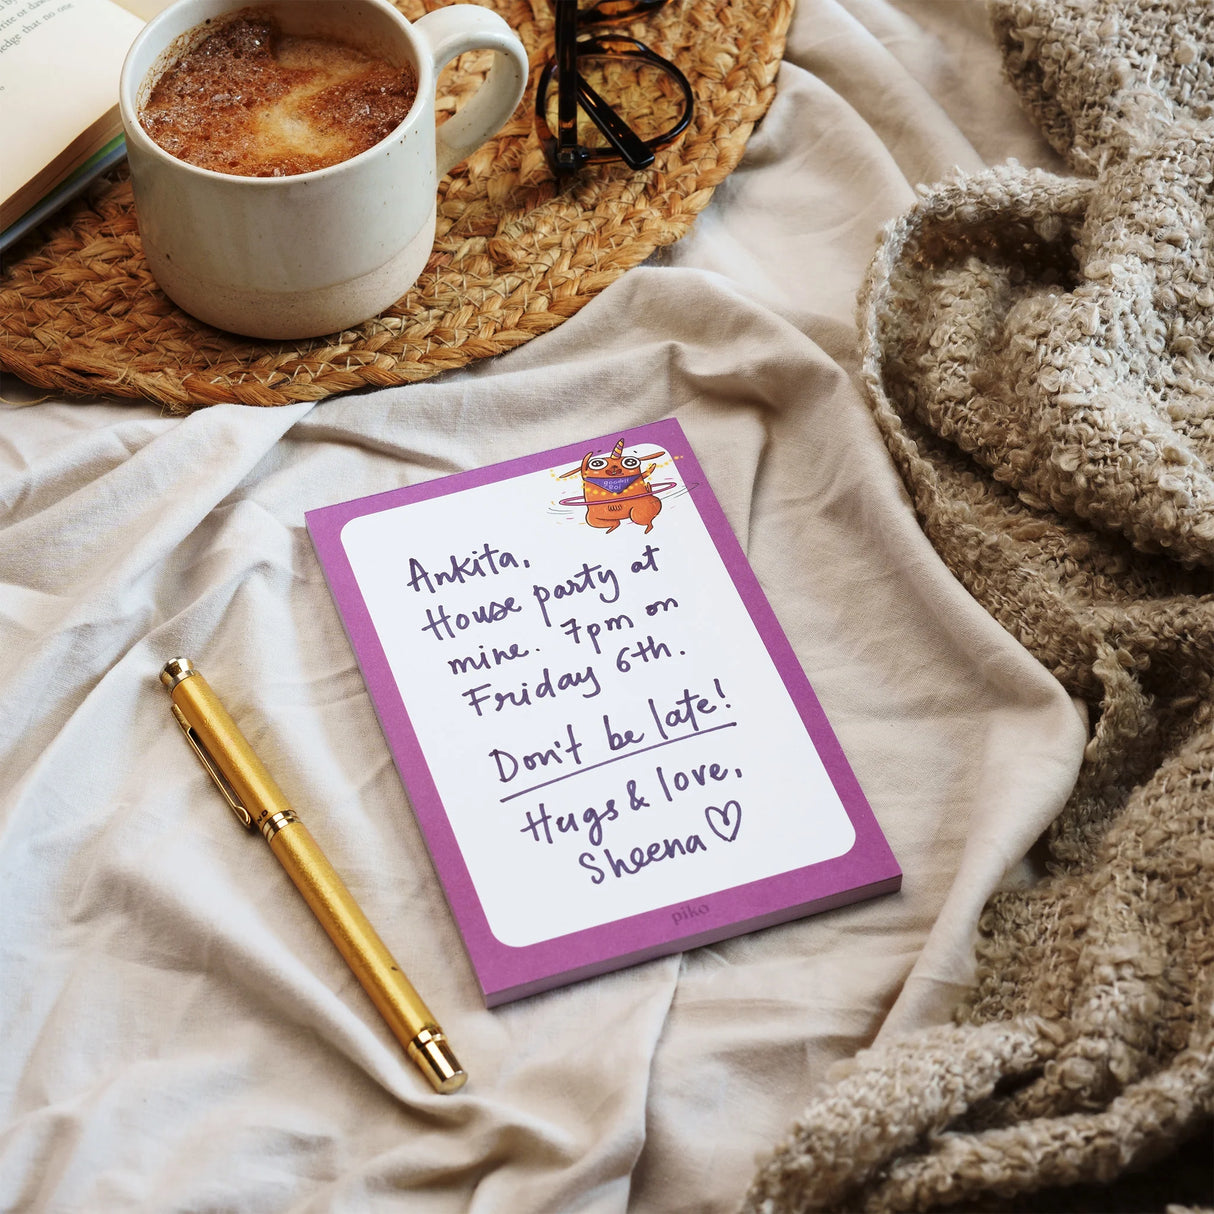 write or daw
ledge that no one
goodest
Boi
Ankita,
House party at
mine. 7pm on
Friday 6th.
Don't be late!
Hugs & love,
Sheena
piko